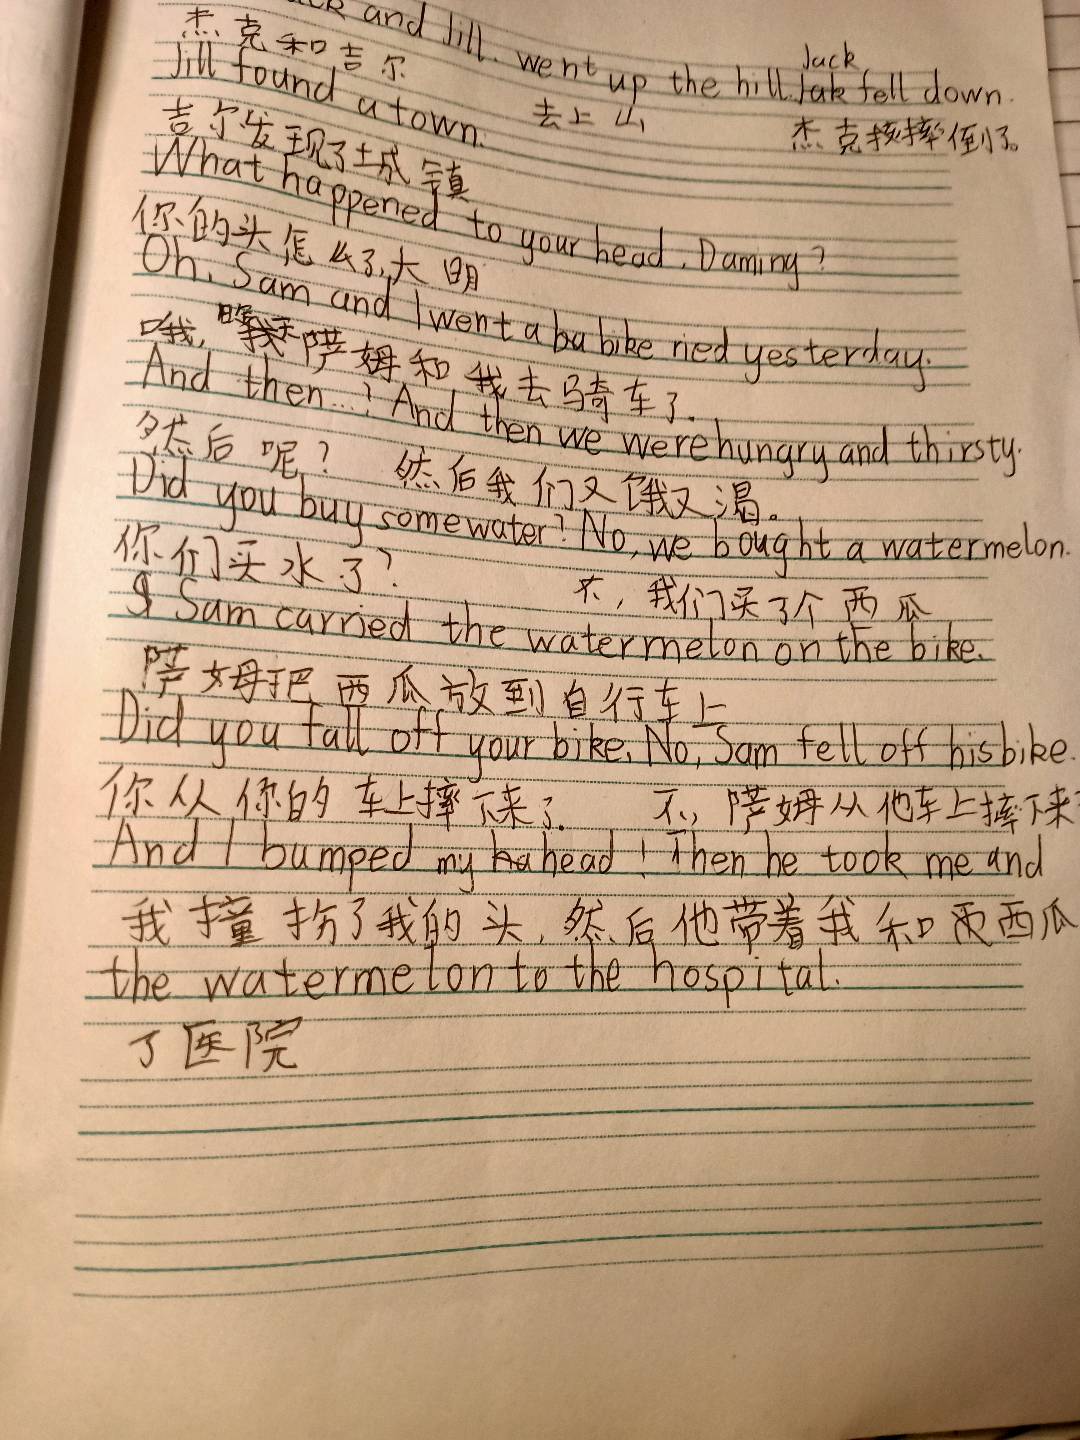 and Jill. went up the hill. Jack Jak fell down.
杰克和吉尔 去上山 杰克摔倒了。
Jill found a town.
吉尔发现了城镇
What happened to your head, Daming?
你的头怎么了,大明
Oh, Sam and I went a ba bike ried yesterday.
哦, 昨天萨姆和我去骑车了.
And then...? And then we were hungry and thirsty.
然后呢? 然后我们又饿又渴。
Did you buy some water? No, we bought a watermelon.
你们买水了? 不,我们买了个西瓜
Sam carried the watermelon on the bike.
萨姆把西瓜放到自行车上
Did you fall off your bike, No, Sam fell off his bike.
你从你的车上摔下来了. 不,萨姆从他车上摔下来
And I bumped my ha head! Then he took me and
我撞伤了我的头,然后他带着我和西瓜
the watermelon to the hospital.
了医院